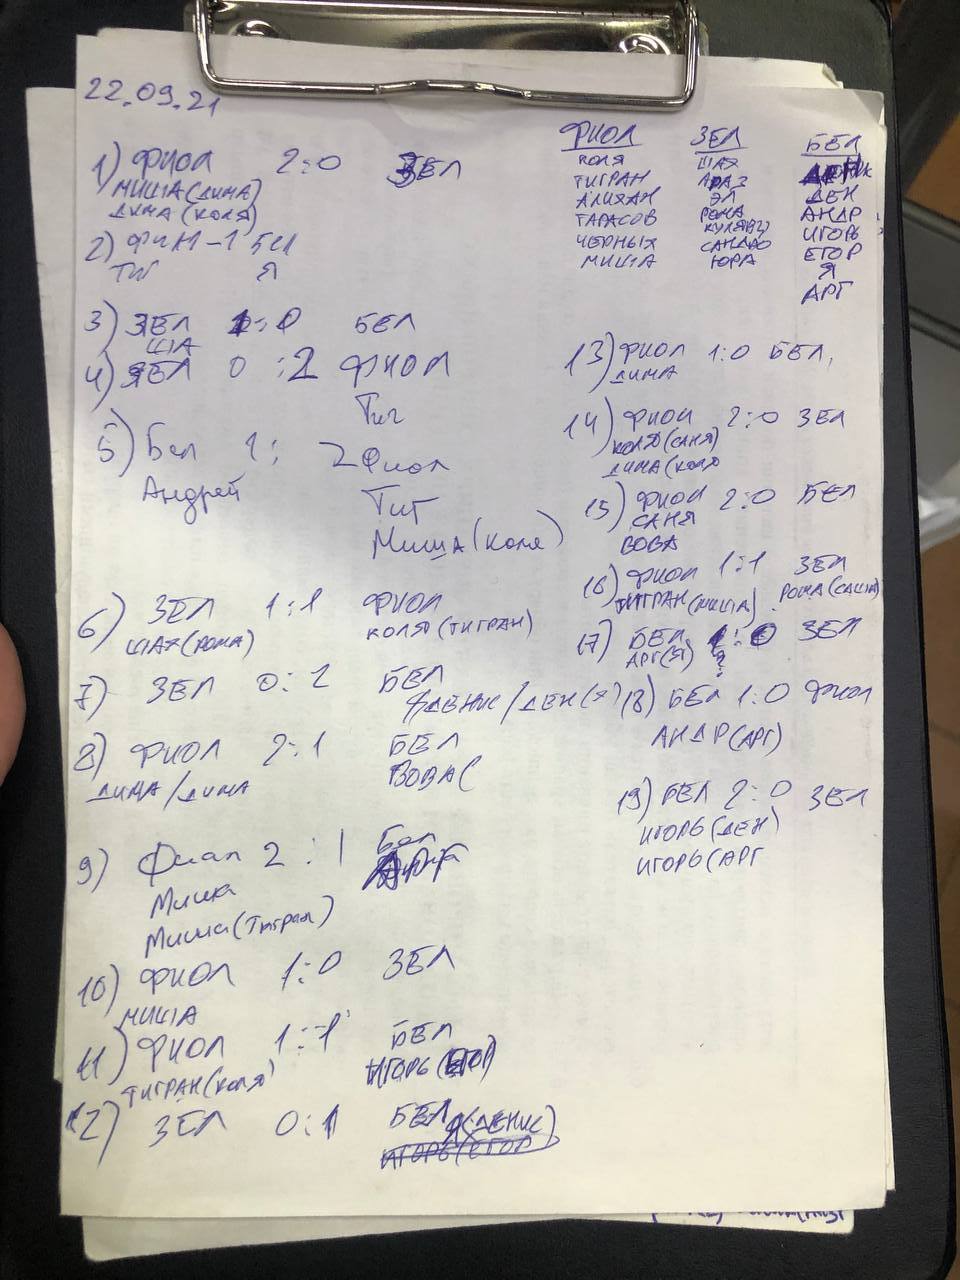 22.09.21
1) ФИОЛ 2:0 ЗЕЛ
МИША(ДИМА)
ДИМА (КОЛЯ)
2) ФИОЛ 1-1 БЕЛ
ТИГ Я
3) ЗЕЛ 1:0 БЕЛ
ША
4) ЗЕЛ 0:2 ФИОЛ
Тиг
5) Бел 1:2 Фиол
Андрей Тиг
Миша(Коля)
6) ЗЕЛ 1:1 ФИОЛ
ШАХ(РОМА) КОЛЯ(ТИГРАН)
7) ЗЕЛ 0:2 БЕЛ
ДЕНИС/ДЕН(Я)
8) ФИОЛ 2:1 БЕЛ
ДИМА/ДИМА ВОВА(
9) Фиол 2:1 Бел
Миша
Миша(Тигран)
10) ФИОЛ 1:0 ЗЕЛ
МИША
11) ФИОЛ 1:1 БЕЛ
ТИГРАН(КОЛЯ) ИГОРЬ(ЕГОР)
12) ЗЕЛ 0:1 БЕЛ
Я(ДЕНИС)
ИГОРЬ(ЕГОР
ФИОЛ
КОЛЯ
ТИГРАН
АЛИХАН
ТАРАСОВ
ЧЕРНЫХ
МИША
ЗЕЛ
ШАХ
АРАЗ
ЭЛ
РОМА
САНДРО
ЮРА
БЕЛ
ДЕН
АНДР
ИГОРЬ
ЕГОР
Я
АРГ
13) ФИОЛ 1:0 БЕЛ
ДИМА
14) ФИОЛ 2:0 ЗЕЛ
КОЛЯ(САНЯ)
ДИМА(КОЛЯ
15) ФИОЛ 2:0 БЕЛ
САНЯ
ВОВА
16) ФИОЛ 1:1 ЗЕЛ
ТИГРАН(МИША) РОМА(САША)
17) БЕЛ 1:0 ЗЕЛ
АРГ(Я) ?
18) БЕЛ 1:0 ФИОЛ
АНДР(АРГ)
19) БЕЛ 2:0 ЗЕЛ
ИГОРЬ(ДЕН)
ИГОРЬ(АРГ